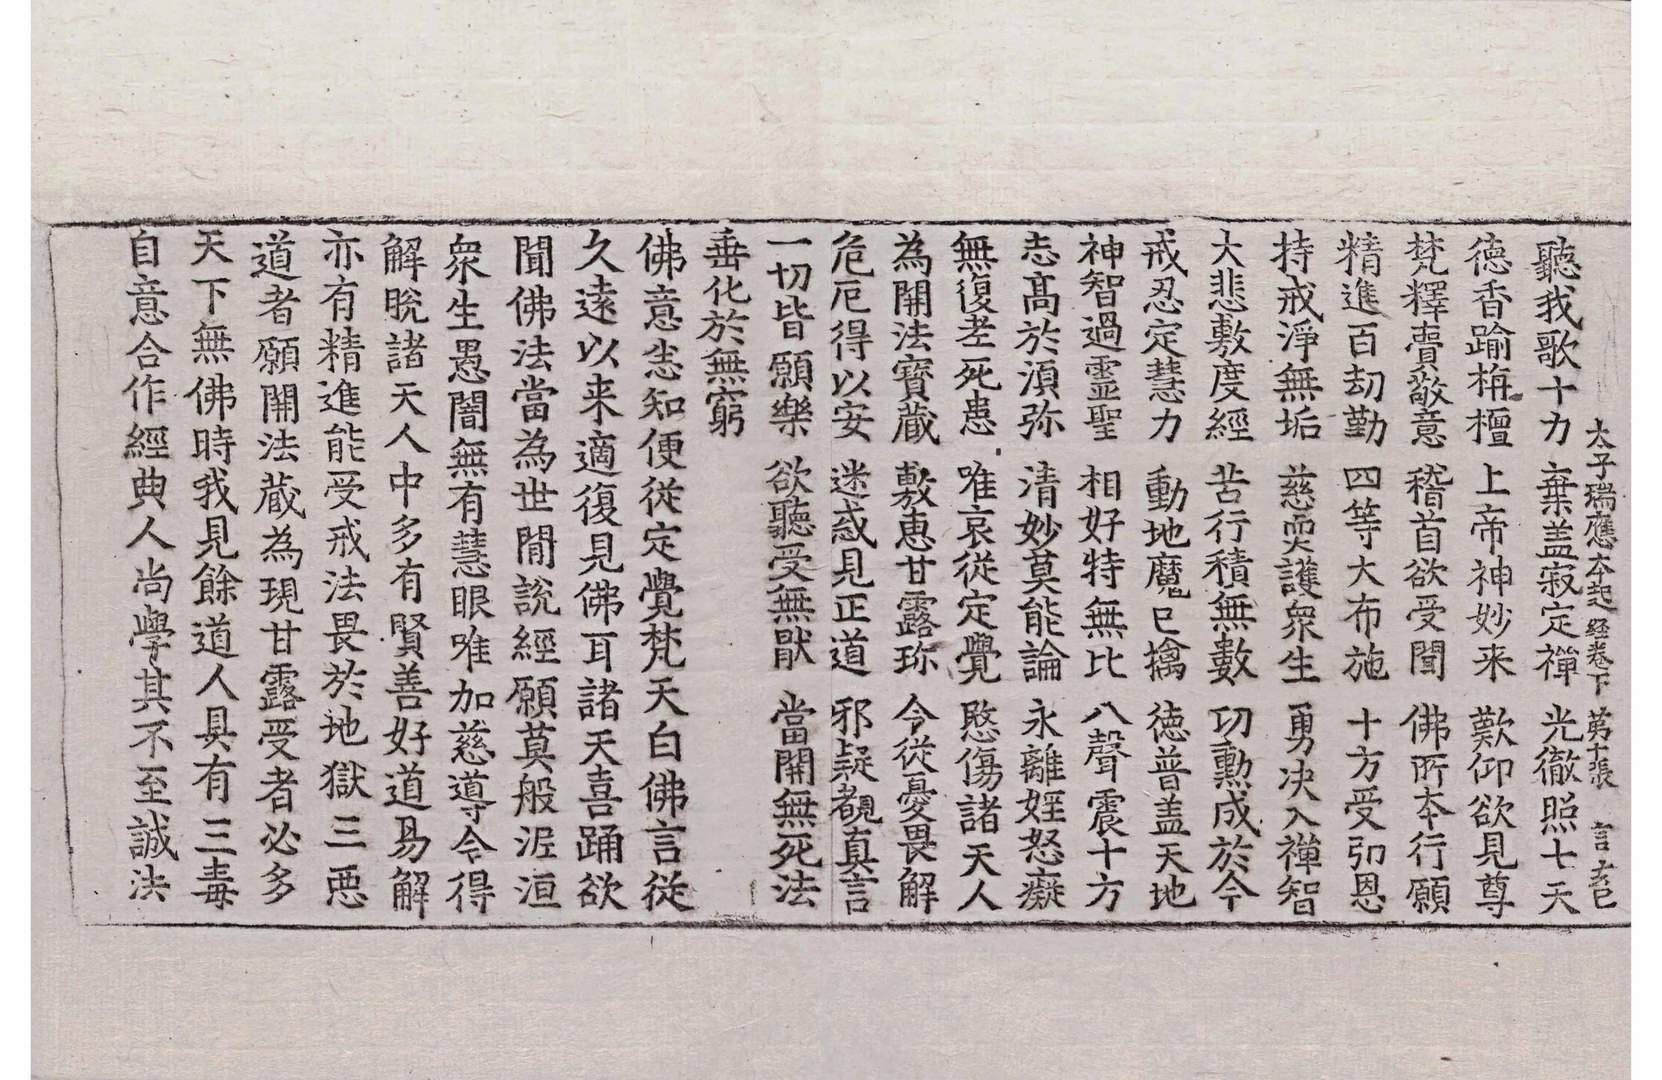 太子瑞應本起経卷下 第十張 言
聽我歌十力 棄盖寂定禪 光徹照七天
德香踰栴檀 上帝神妙来 歎仰欲見尊
梵釋齎敬意 稽首欲受聞 佛所本行願
精進百劫勤 四等大布施 十方受弘恩
持戒淨無垢 慈耎護衆生 勇决入禪智
大悲敷度經 苦行積無數 功勲成於今
戒忍定慧力 動地魔已擒 德普盖天地
神智過靈聖 相好特無比 八聲震十方
志高於湏弥 清妙莫能論 永離婬怒癡
無復老死患 唯哀從定覺 愍傷諸天人
為開法寶藏 敷惠甘露珎 令從憂畏解
危厄得以安 迷惑見正道 邪疑覩真言
一切皆願樂 欲聽受無猒 當開無死法
垂化於無窮
佛意悉知便從定覺梵天白佛言從
久遠以来適復見佛耳諸天喜踊欲
聞佛法當為世間說經願莫般泥洹
衆生愚闇無有慧眼唯加慈導令得
解脫諸天人中多有賢善好道易解
亦有精進能受戒法畏於地獄三惡
道者願開法藏為現甘露受者必多
天下無佛時我見餘道人具有三毒
自意合作經典人尚學其不至誠法